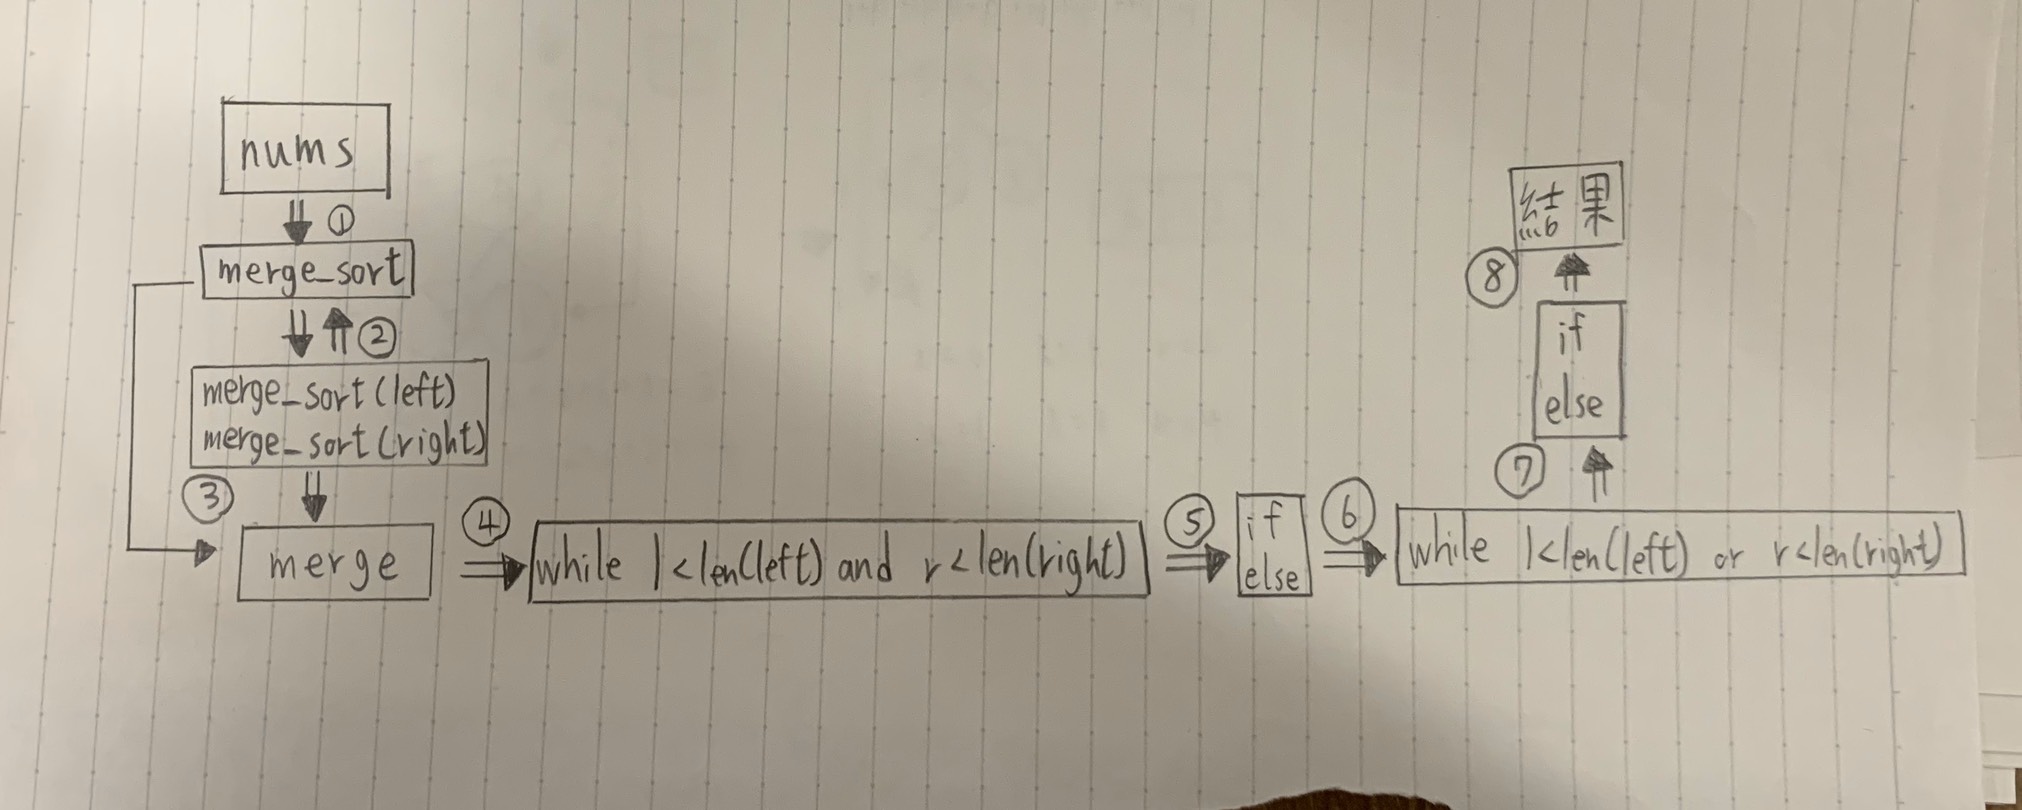 nums
①
merge_sort
②
merge_sort(left)
merge_sort(right)
③
merge
④
while l<len(left) and r<len(right)
⑤
if
else
⑥
while l<len(left) or r<len(right)
⑦
if
else
⑧
結果